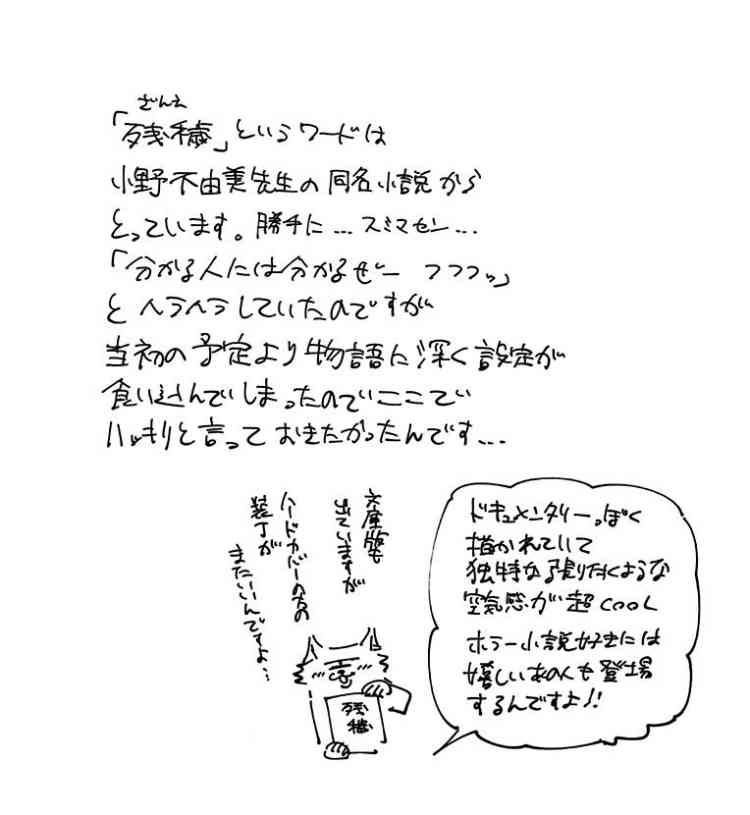 ざんえ
「残穢」というワードは
小野不由美先生の同名小説から
とっています。勝手に…スミマセン…
「分かる人には分かるぜー フフフッ」
とヘラヘラしていたのですが
当初の予定より物語に深く設定が
食い込んでしまったのでここで
ハッキリと言っておきたかったんです…
文庫版も
出ていますが
ハードカバーの方の
装丁が
またいいんですよ…
残
穢
ドキュメンタリーっぽく
描かれていて
独特な張り付くような
空気感が超COOL
ホラー小説好きには
嬉しいあの人も登場
するんですよ!!